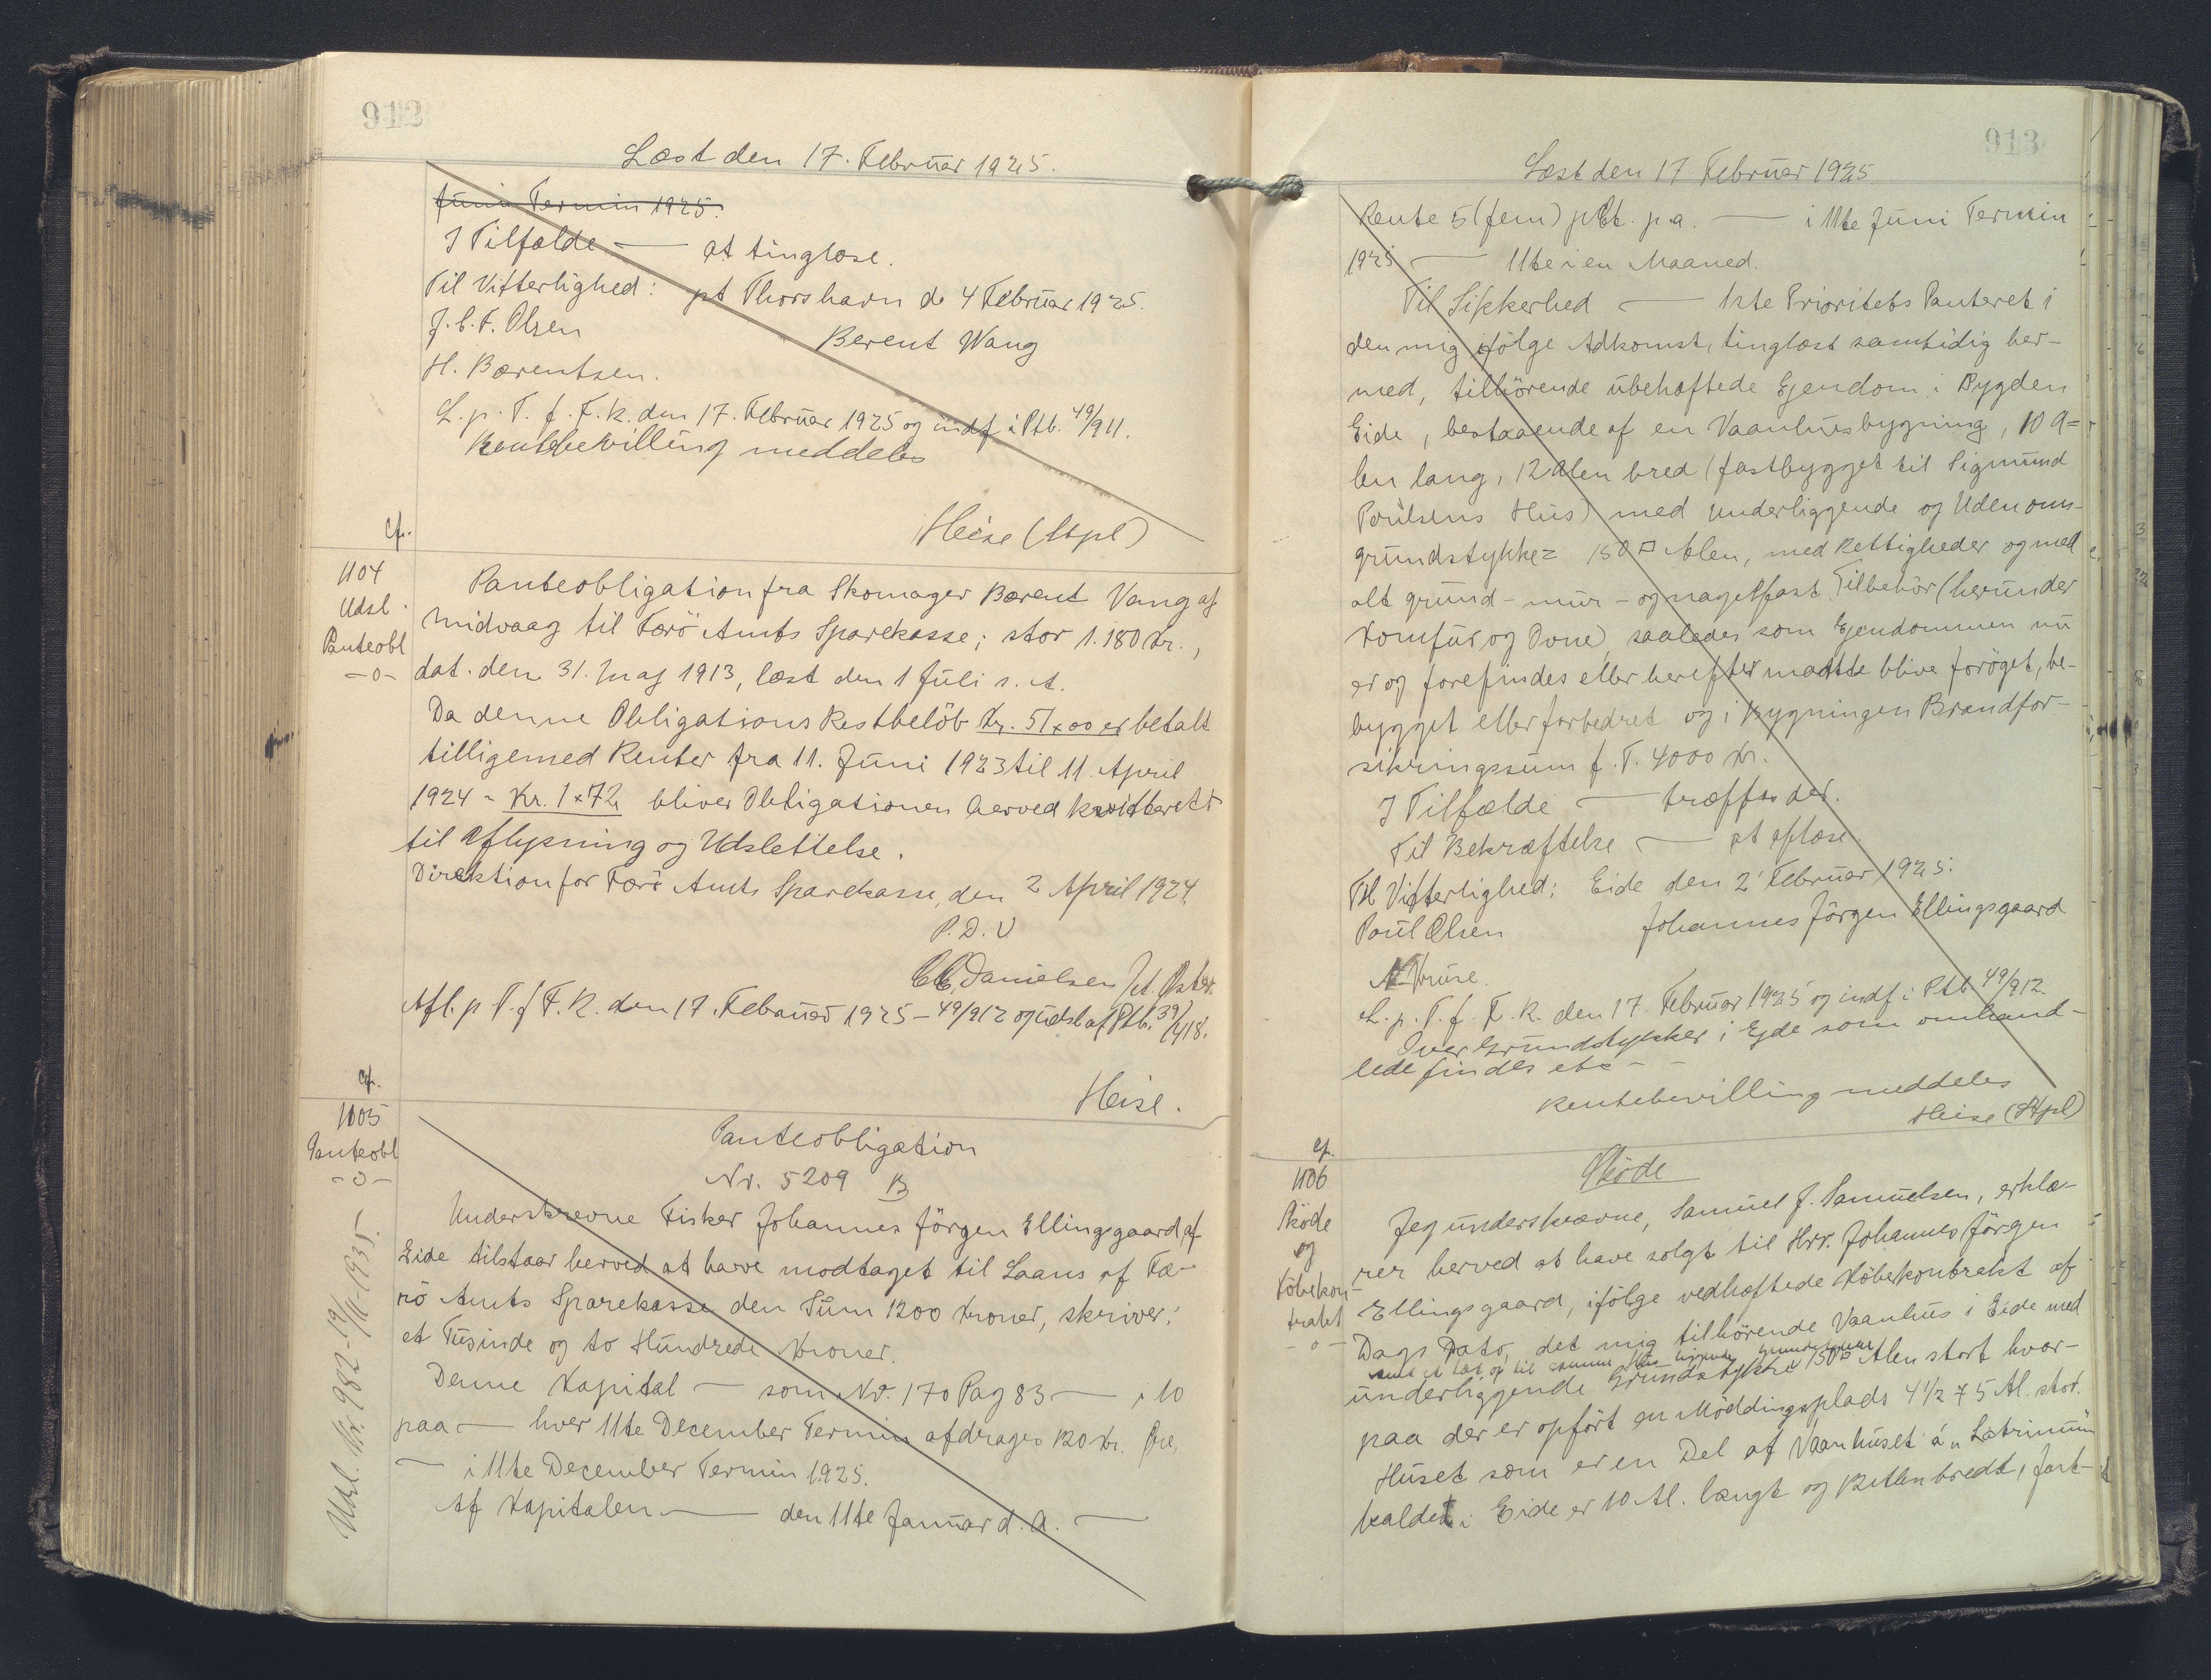 912
Læst den 17. Februar 1925.
Juni Termin 1925.
I Tilfælde — at tinglæse.
Til Vitterlighed: pt Thorshavn d. 4 Februar 1925.
J. C. F. Olsen
Berent Wang
H. Bærentsen.
L. p. T. f. F. K. den 17. Februar 1925 og indf i Ptb. 49/911.
Rentebevilling meddeles
Heise (Stpl)
cf.
1104
Udsl.
Panteobl
-o-
Panteobligation fra Skomager Bærent Vang af
Midvaag til Færö Amts Sparekasse; stor 1.180 Kr.,
dat. den 31. Maj 1913, læst den 1 Juli s. A.
Da denne Obligations Restbelöb Kr. 51 x 00 er betalt
tilligemed Renter fra 11. Juni 1923 til 11. April
1924 - Kr. 1 x 72 bliver Obligationen herved kvitteret
til Aflysning og Udslettelse.
Direktion for Færö Amts Sparekasse, den 2 April 1924
P. D. V
C. C. Danielsen
Afl. p T. f F. K. den 17. Februar 1925 - 49/912 og udsl af Ptb. 39/418.
Heise.
cf.
1105
Panteobl
-o-
Udsl. Nr. 982 - 19/11-1935.
Panteobligation
Nr. 5209 B
Underskrevne Fisker Johannes Jörgen Ellingsgaard af
Eide tilstaar herved at have modtaget til Laans af Fæ-
rö Amts Sparekasse den Sum 1200 Kroner, skriver:
et Tusinde og to Hundrede Kroner.
Denne Kapital — som Nr. 170 Pag 83 — , 10
paa — hver 11te December Termin afdrages 120 Kr. Öre,
— i 11te December Termin 1925.
Af Kapitalen — den 11te Januar d. A. —
913
Læst den 17 Februar 1925
Rente 5 (fem) pCt. p.a. — i 11te Juni Termin
1925 — 11te i en Maaned.
Til Sikkerhed — 1ste Prioritets Panteret i
den mig ifölge Adkomst, tinglæst samtidig her-
med, tilhörende ubehæftede Ejendom i Bygden
Eide, bestaaende af en Vaanhusbygning, 10 A=
len lang, 12 Alen bred (fastbygget til Sigmund
Poulsens Hus) med underliggende og Udenoms-
grundstykke = 150 □ Alen, med Rettigheder og med
alt grund- mur- og nagelfast Tilbehör (herunder
Komfur og Ovne) saaledes som Ejendommen nu
er og forefindes eller herefter maatte blive foröget, be-
bygget eller forbedret og i Bygningen Brandfor-
sikringssum f. T. 4000 Kr.
I Tilfælde — træffes der.
Til Bekræftelse — at aflæse
Til Vitterlighed: Eide den 2' Februar 1925.
Poul Olsen Johannes Jörgen Ellingsgaard
N Kruse.
L. p. T. f. F. K. den 17. Februar 1925 og indf i Ptb 49/912.
Over Grundstykker i Ejde som omhand-
lede findes etc -
Rentebevilling meddeles
Heise (Stpl)
cf.
1106
Sköde
og
Köbekon-
trakt
-o-
Sköde
Jeg underskrevne, Samuel J. Samuelsen, erklæ-
rer herved at have solgt til Hrr. Johannes Jörgen
Ellingsgaard, ifölge vedhæftede Köbekontrakt af
Dags Dato, det mig tilhörende Vaanhus i Eide med
samt et tæt op til samme Hus liggende Grundstykke
underliggende Grundstykke 150 □ Alen stort hvor-
paa der er opfört en Möddingsplads 4 1/2 x 5 Al. stor.
Huset som er en Del af Vaanhuset á „Látrinum"
kaldet i Eide er 10 Al. langt og 12 Alen bredt, fast-